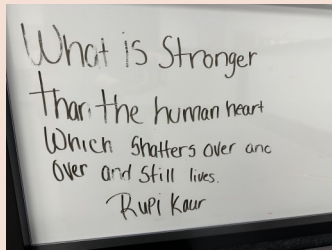 What is Stronger
than the human heart
Which Shatters over and
over and still lives.
Rupi Kaur